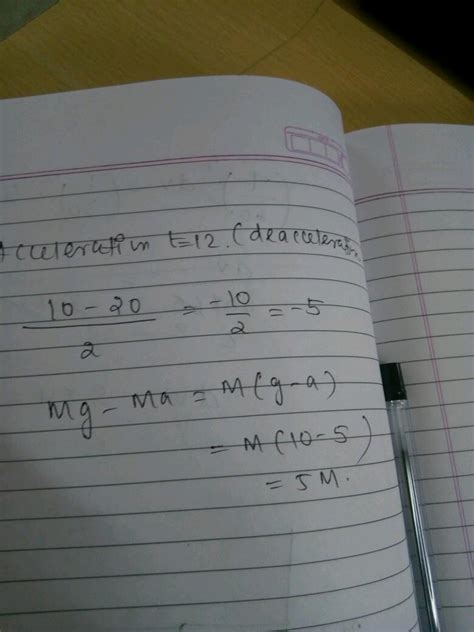 Acceleration t=12. (deacceleration
10-20 / 2 = -10/2 = -5
Mg - Ma = M(g-a)
= M(10-5)
= 5M.